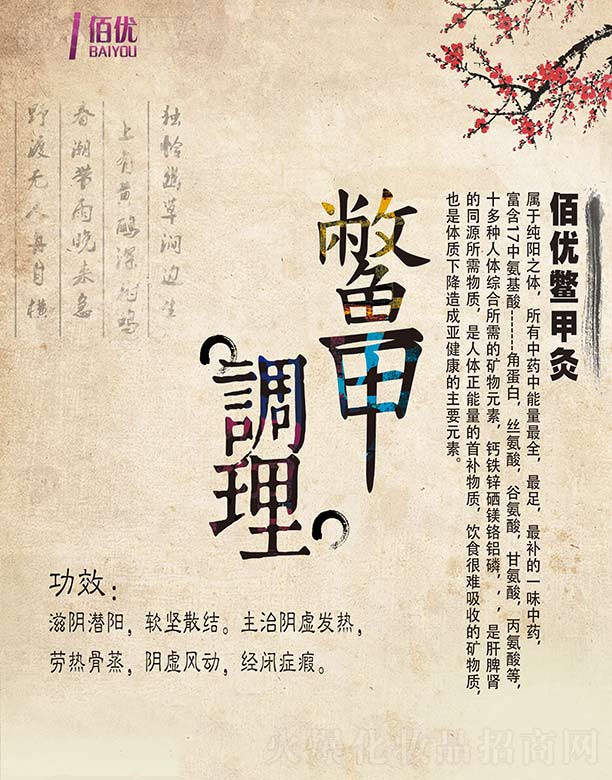 佰优
BAIYOU
独怜幽草涧边生
上有黄鹂深树鸣
春潮带雨晚来急
野渡无人舟自横
鳖甲
調理
佰优鳖甲灸
属于纯阳之体，所有中药中能量最全，最足，最补的一味中药，
富含17中氨基酸--------角蛋白，丝氨酸，谷氨酸，甘氨酸，丙氨酸等，
十多种人体综合所需的矿物元素，钙铁锌硒镁铬铝磷，，是肝脾肾
的同源所需物质，是人体正能量的首补物质，饮食很难吸收的矿物质，
也是体质下降造成亚健康的主要元素。
功效：
滋阴潜阳，软坚散结。主治阴虚发热，
劳热骨蒸，阴虚风动，经闭症瘕。
火爆化妆品招商网